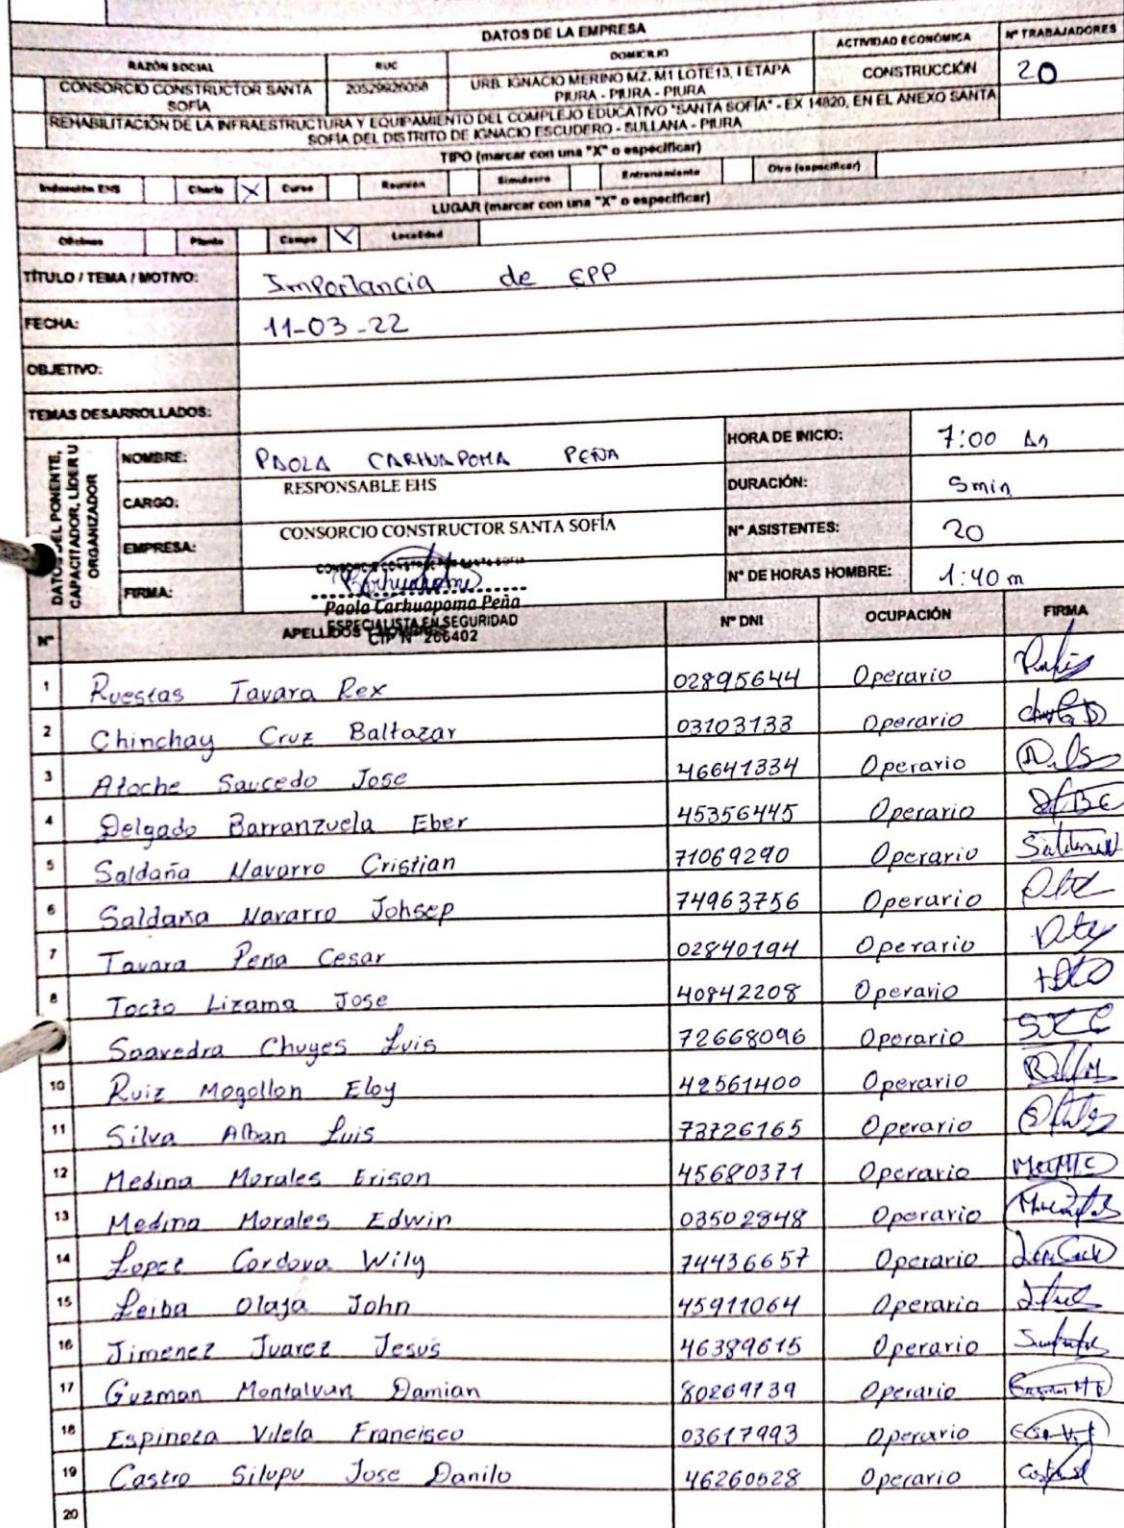 DATOS DE LA EMPRESA
RAZÓN SOCIAL RUC DOMICILIO ACTIVIDAD ECONÓMICA N° TRABAJADORES
CONSORCIO CONSTRUCTOR SANTA SOFÍA 20529926058 URB. IGNACIO MERINO MZ. M1 LOTE13, I ETAPA PIURA - PIURA - PIURA CONSTRUCCIÓN 20
REHABILITACIÓN DE LA INFRAESTRUCTURA Y EQUIPAMIENTO DEL COMPLEJO EDUCATIVO "SANTA SOFÍA" - EX 14820, EN EL ANEXO SANTA
SOFÍA DEL DISTRITO DE IGNACIO ESCUDERO - SULLANA - PIURA
TIPO (marcar con una "X" o especificar)
Inducción EHS Charla X Curso Reunión Simulacro Entrenamiento Otro (especificar)
LUGAR (marcar con una "X" o especificar)
Oficinas Planta Campo X Localidad
TÍTULO / TEMA / MOTIVO: Importancia de EPP
FECHA: 11-03-22
OBJETIVO:
TEMAS DESARROLLADOS:
DATOS DEL PONENTE, CAPACITADOR, LÍDER U ORGANIZADOR
NOMBRE: PAOLA CARHUAPOMA PEÑA HORA DE INICIO: 7:00 Am
CARGO: RESPONSABLE EHS DURACIÓN: 5min
EMPRESA: CONSORCIO CONSTRUCTOR SANTA SOFÍA N° ASISTENTES: 20
FIRMA: N° DE HORAS HOMBRE: 1:40 m
CONSORCIO CONSTRUCTOR SANTA SOFIA
Paola Carhuapoma Peña
ESPECIALISTA EN SEGURIDAD
CIP N° 266402
N° APELLIDOS Y NOMBRES N° DNI OCUPACIÓN FIRMA
1 Ruestas Tavara Rex 02895644 Operario
2 Chinchay Cruz Baltazar 03103133 Operario
3 Atoche Saucedo Jose 46641334 Operario
4 Delgado Barranzuela Eber 45356445 Operario
5 Saldaña Navarro Cristian 71069290 Operario
6 Saldaña Navarro Johsep 74963756 Operario
7 Tavara Peña Cesar 02840194 Operario
8 Tocto Lizama Jose 40842208 Operario
Saavedra Chuyes Luis 72668096 Operario
10 Ruiz Mogollon Eloy 42561400 Operario
11 Silva Alban Luis 73726165 Operario
12 Medina Morales Erison 45680371 Operario
13 Medina Morales Edwin 03502848 Operario
14 Lopez Cordova Wily 74436657 Operario
15 Leiba Olaja John 45911064 Operario
16 Jimenez Juarez Jesus 46389615 Operario
17 Guzman Montalvan Damian 80269739 Operario
18 Espinoza Vilela Francisco 03617993 Operario
19 Castro Silupu Jose Danilo 46260528 Operario
20